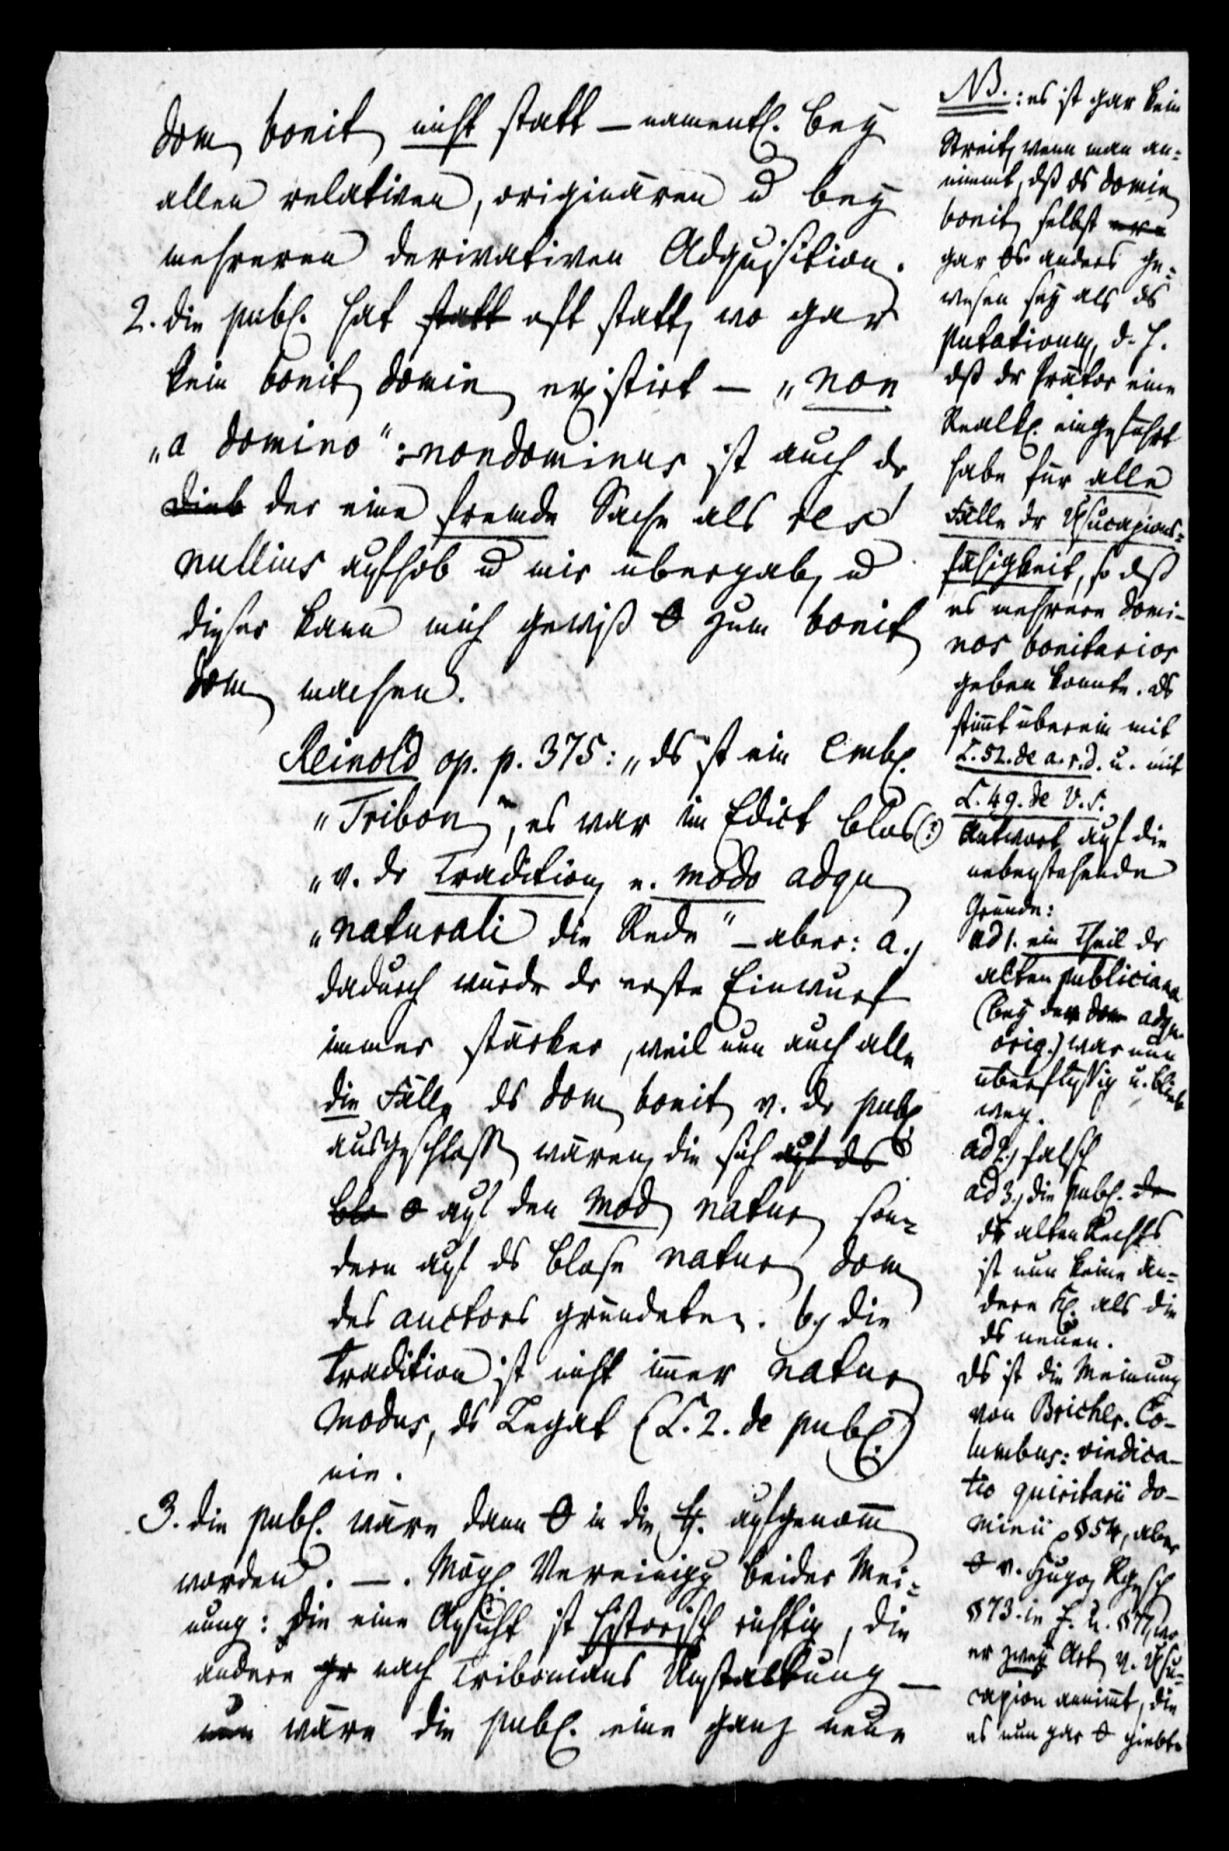 dom bonit nicht statt – namentl. bey
allen relativen, originären u bey
mehreren derivativen Adquisition.
2. die publ. hat statt oft statt, wo gar
kein bonit domin existirt – „non
„a domino“: nondominus ist auch dr
Dieb der eine fremde Sache als res
nullius aufhob u mir übergab, u
dieser kann mich gewiß 0 zum bonit
dom machen.
Reinold op. p. 375: „ds ist ein Embl.
„Tribon“, es war im Edict blos (?)
„v. dr Tradition, u. modo adqu
„naturali die Rede“ – aber: a.,
dadurch würde dr erste Einwurf
immer stärker, weil nun auch alle
die Fälle ds dom bonit v. dr publ
ausgeschloss wären, die sich auf ds
blo 0 auf den mod natur son=
dern auf ds blose natur dom
des auctors gründeten. b, die
Tradition ist nicht immer natur
modus, ds Legat (L. 2. de publ.)
nie.
3. die publ. wäre dann 0 in die aufgenomm
worden. – . Mögl. Vereinigg beider Mei=
nung: Die eine Ansicht ist historisch richtig, die
andere gr nach Tribonians Umstaltung –
nun wäre die publ. eine ganz neue
NB.: es ist gar kein
Streit, wenn man an=
nimmt, dß ds domin
bonit selbst
gar 0s anders ge=
wesen sey als ds
putativum, d. h.
dß dr Prätor eine
Realkl. eingeführt
habe für alle
Fälle dr Usucapions=
fähigkeit, so dß
es mehrere domi-
nos bonitarios
geben konnte. ds
stimmt überein mit
L. 52. de a.r.d. u. mit
L. 49. de V.S.
Antwort auf die
nebenstehende
Gründe:
ad 1. ein Theil dr
alten publiciana
(bey der dom adqu
orig.) war nun
überflüssig u. blieb
weg.
ad 2., falsch
ad 3., die publ. dr
ds alten Rechts
ist nun keine an=
dere Kl. als die
ds neuen.
ds ist die Meinung
von Brichle. Co-
lumbus: vindica-
tio quiritarii do-
minii, §54, aber
0 v. Hugo, Rgesch
§73. in f. u. §77, wo
er zwey Art v. Usu=
capion annimt, die
es nun gar 0 giebt.